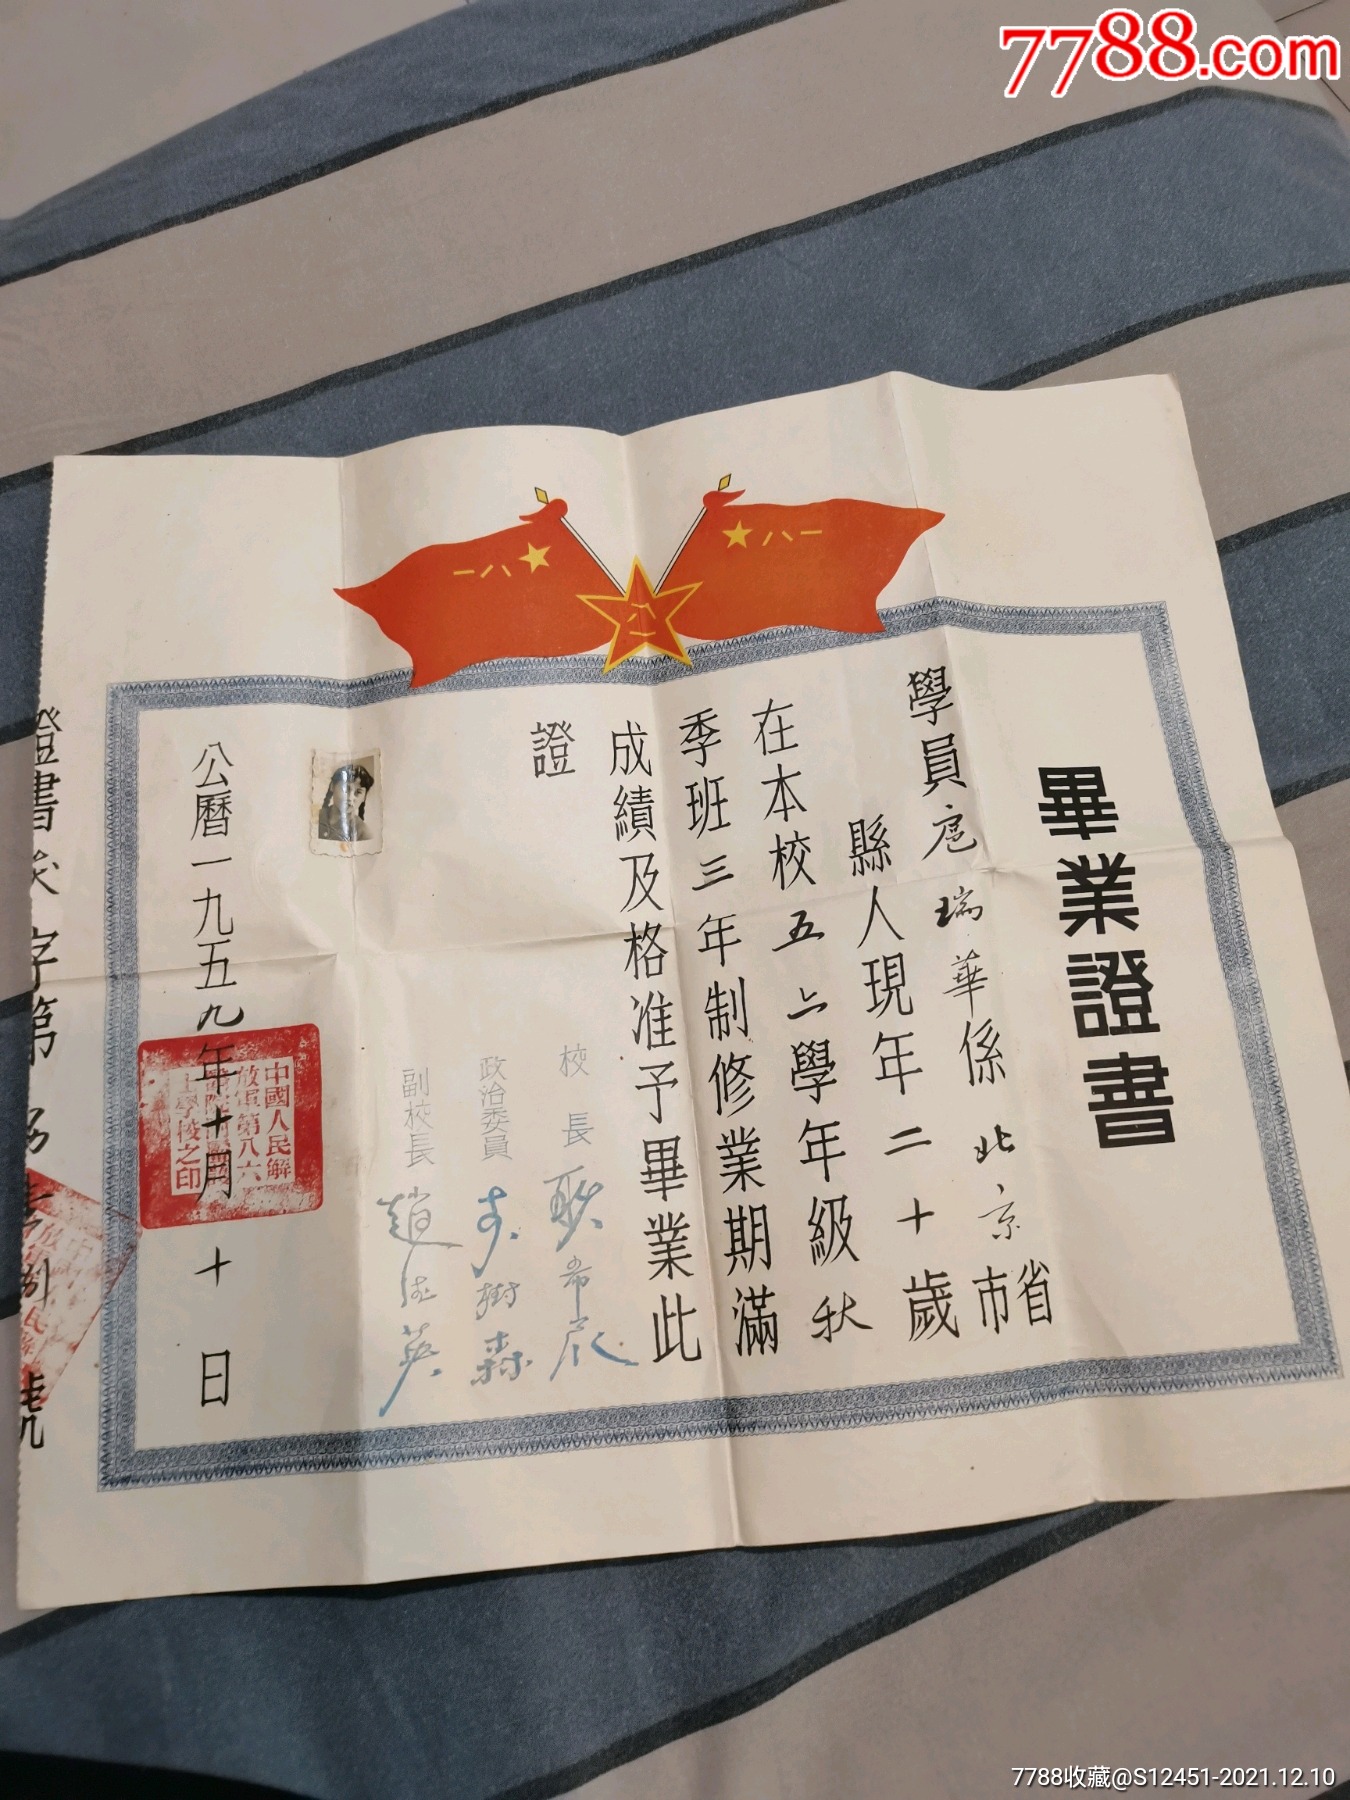 7788.com
八一
八一
八一
畢業證書
學員扈瑞華係北京省市
縣人現年二十歲
在本校五六學年級秋
季班三年制修業期滿
成績及格准予畢業此
證
校長
政治委員
副校長 趙
公曆一九五九年十月十日
中國人民解
放軍第八六
士學校之印
證書 字第 號
7788收藏@S12451-2021.12.10